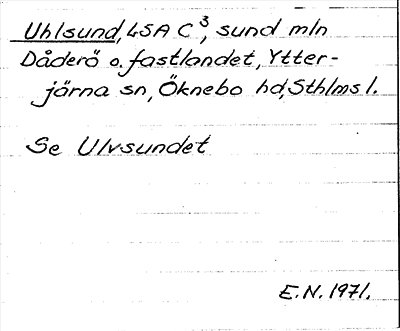 Uhlsund, 45A C³, sund mln
Dåderö o. fastlandet, Ytter-
järna sn, Öknebo hd, Sthlms l.
Se Ulvsundet
E.N. 1971.